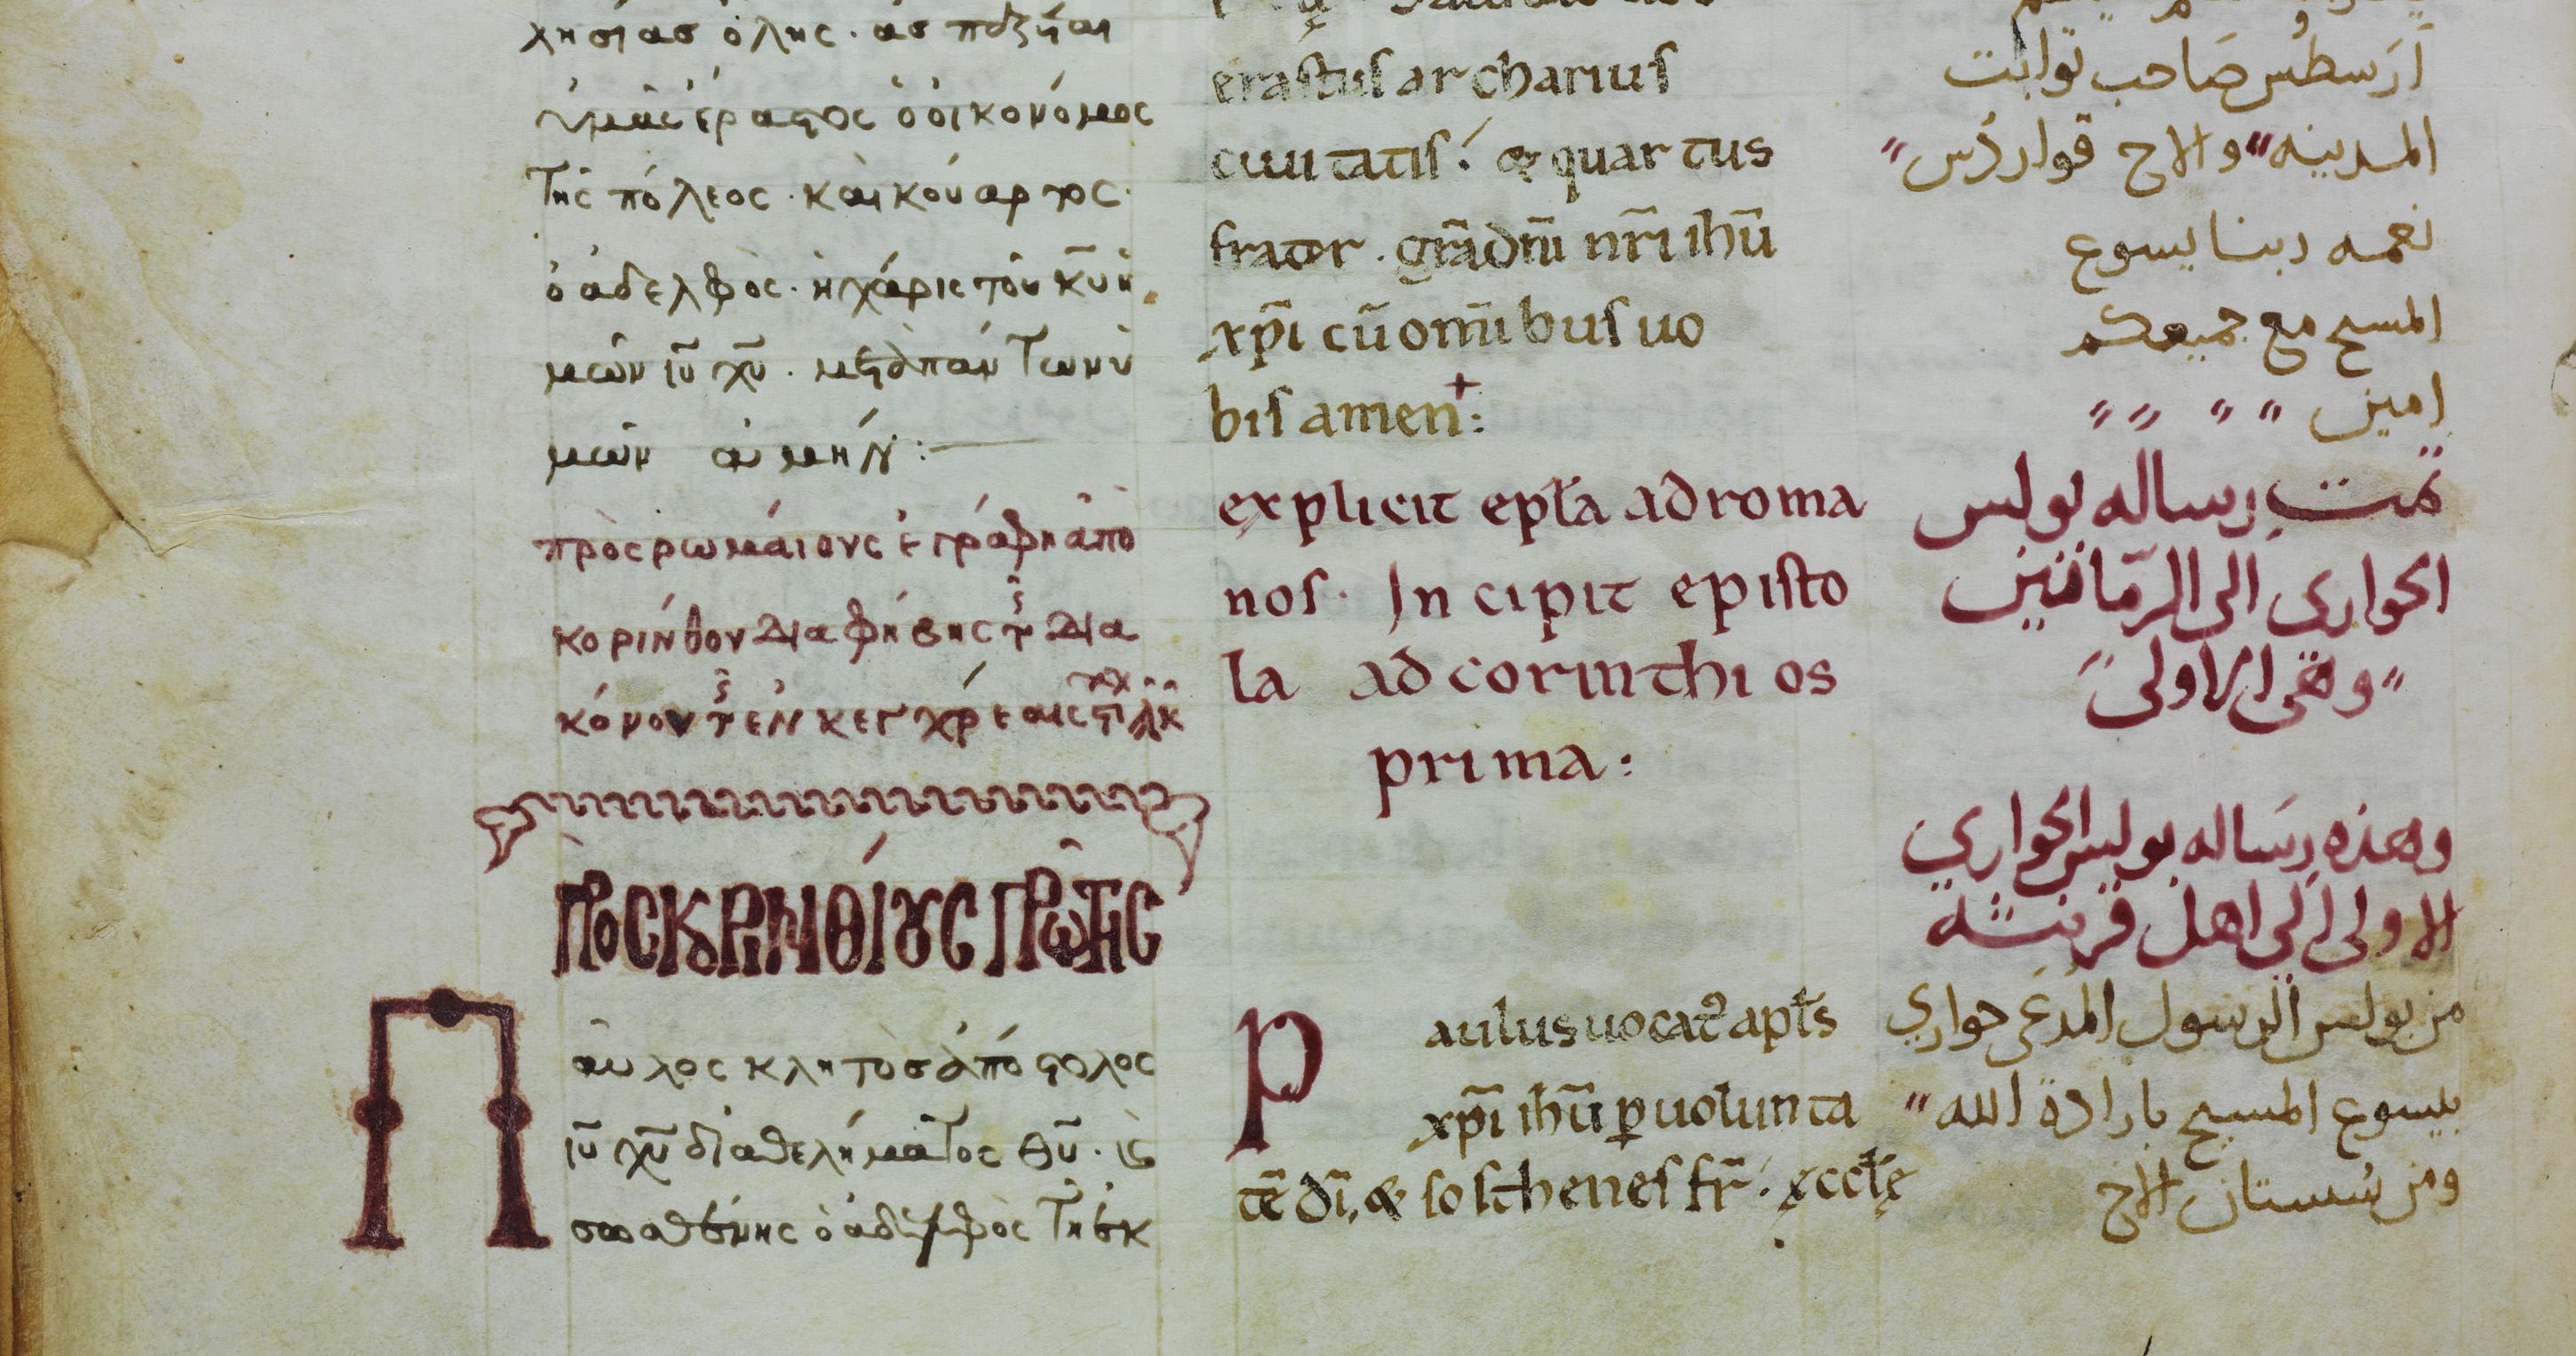 χησίασ ὅλης · ἀσπάζεται
ὑμᾶς ἔραστος ὁ οἰκονόμος
τῆς πόλεος · καὶ κούαρτος ·
ὁ ἀδελφὸς · ἡ χάρις τοῦ κ̅υ̅ ἡ
μῶν ι̅υ̅ χ̅υ̅ · μετὰ πάντων ὑ
μῶν ἀμήν :
πρὸς ρωμάιους ἐγράφη ἀπὸ
κορίνθου διὰ φήβης τ͂ δια
κόνου τ͂ ἐν κεγχρέαις
ΠΡΟΣ ΚΟΡΙΝΘΊΟΥΣ ΠΡΩΤΗΣ
Παυλος κλητὸσ ἀπόστολος
ι̅υ̅ χ̅υ̅ διὰ θελήματος θ̅υ̅ · κς
σωσθένης ὁ ἀδελφὸς τῆ ἐκ
erastus archarius
ciuitatis · & quartus
frater · gr̅a dn̅i nr̅i ihu̅
xp̅i cu̅ om̅ibus uo
bis amen :
explicit epl̅a ad roma
nos · Incipit episto
la ad corinthios
prima :
Paulus uocat᷑ apl̅s
xp̅i ihu̅ p̲ uolunta
te̅ di̅, & sosthenes fr̅ · ęccl̅ę
أَرَسطُس صَاحب توابت
المدينه والاخ قوارتُس
نعمه ربنا يسوع
المسيح مع جميعكم
امين
تمت رساله بولس
الحوارى الى الرمّانين
وهى الاولى
وهذه رسَاله بولس الحواري
الاولى الى اهل قرنثيه
من بولس الرسول المُدعَى حواري
ليسوع المسيح بارادة الله
ومن سُستان الاخ